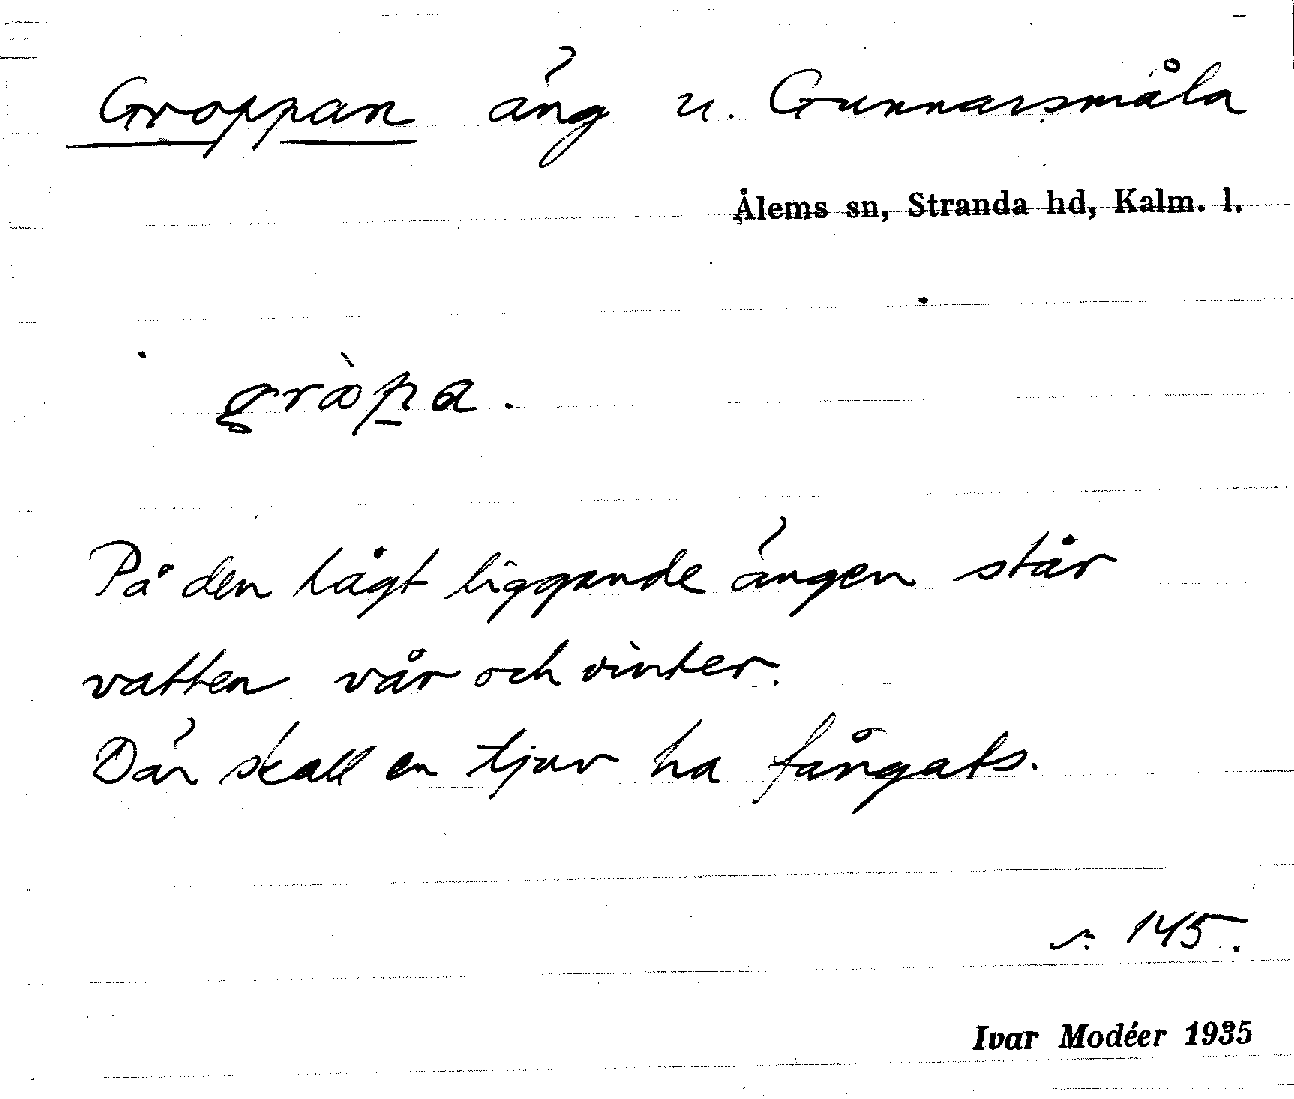 Groppan äng u. Gunnarsmåla
Ålems sn, Stranda hd, Kalm. l.
gròpa.
På den lågt liggande ängen står
vatten vår och vinter.
Där skall en tjuv ha fångats.
s. 145.
Ivar Modéer 1935